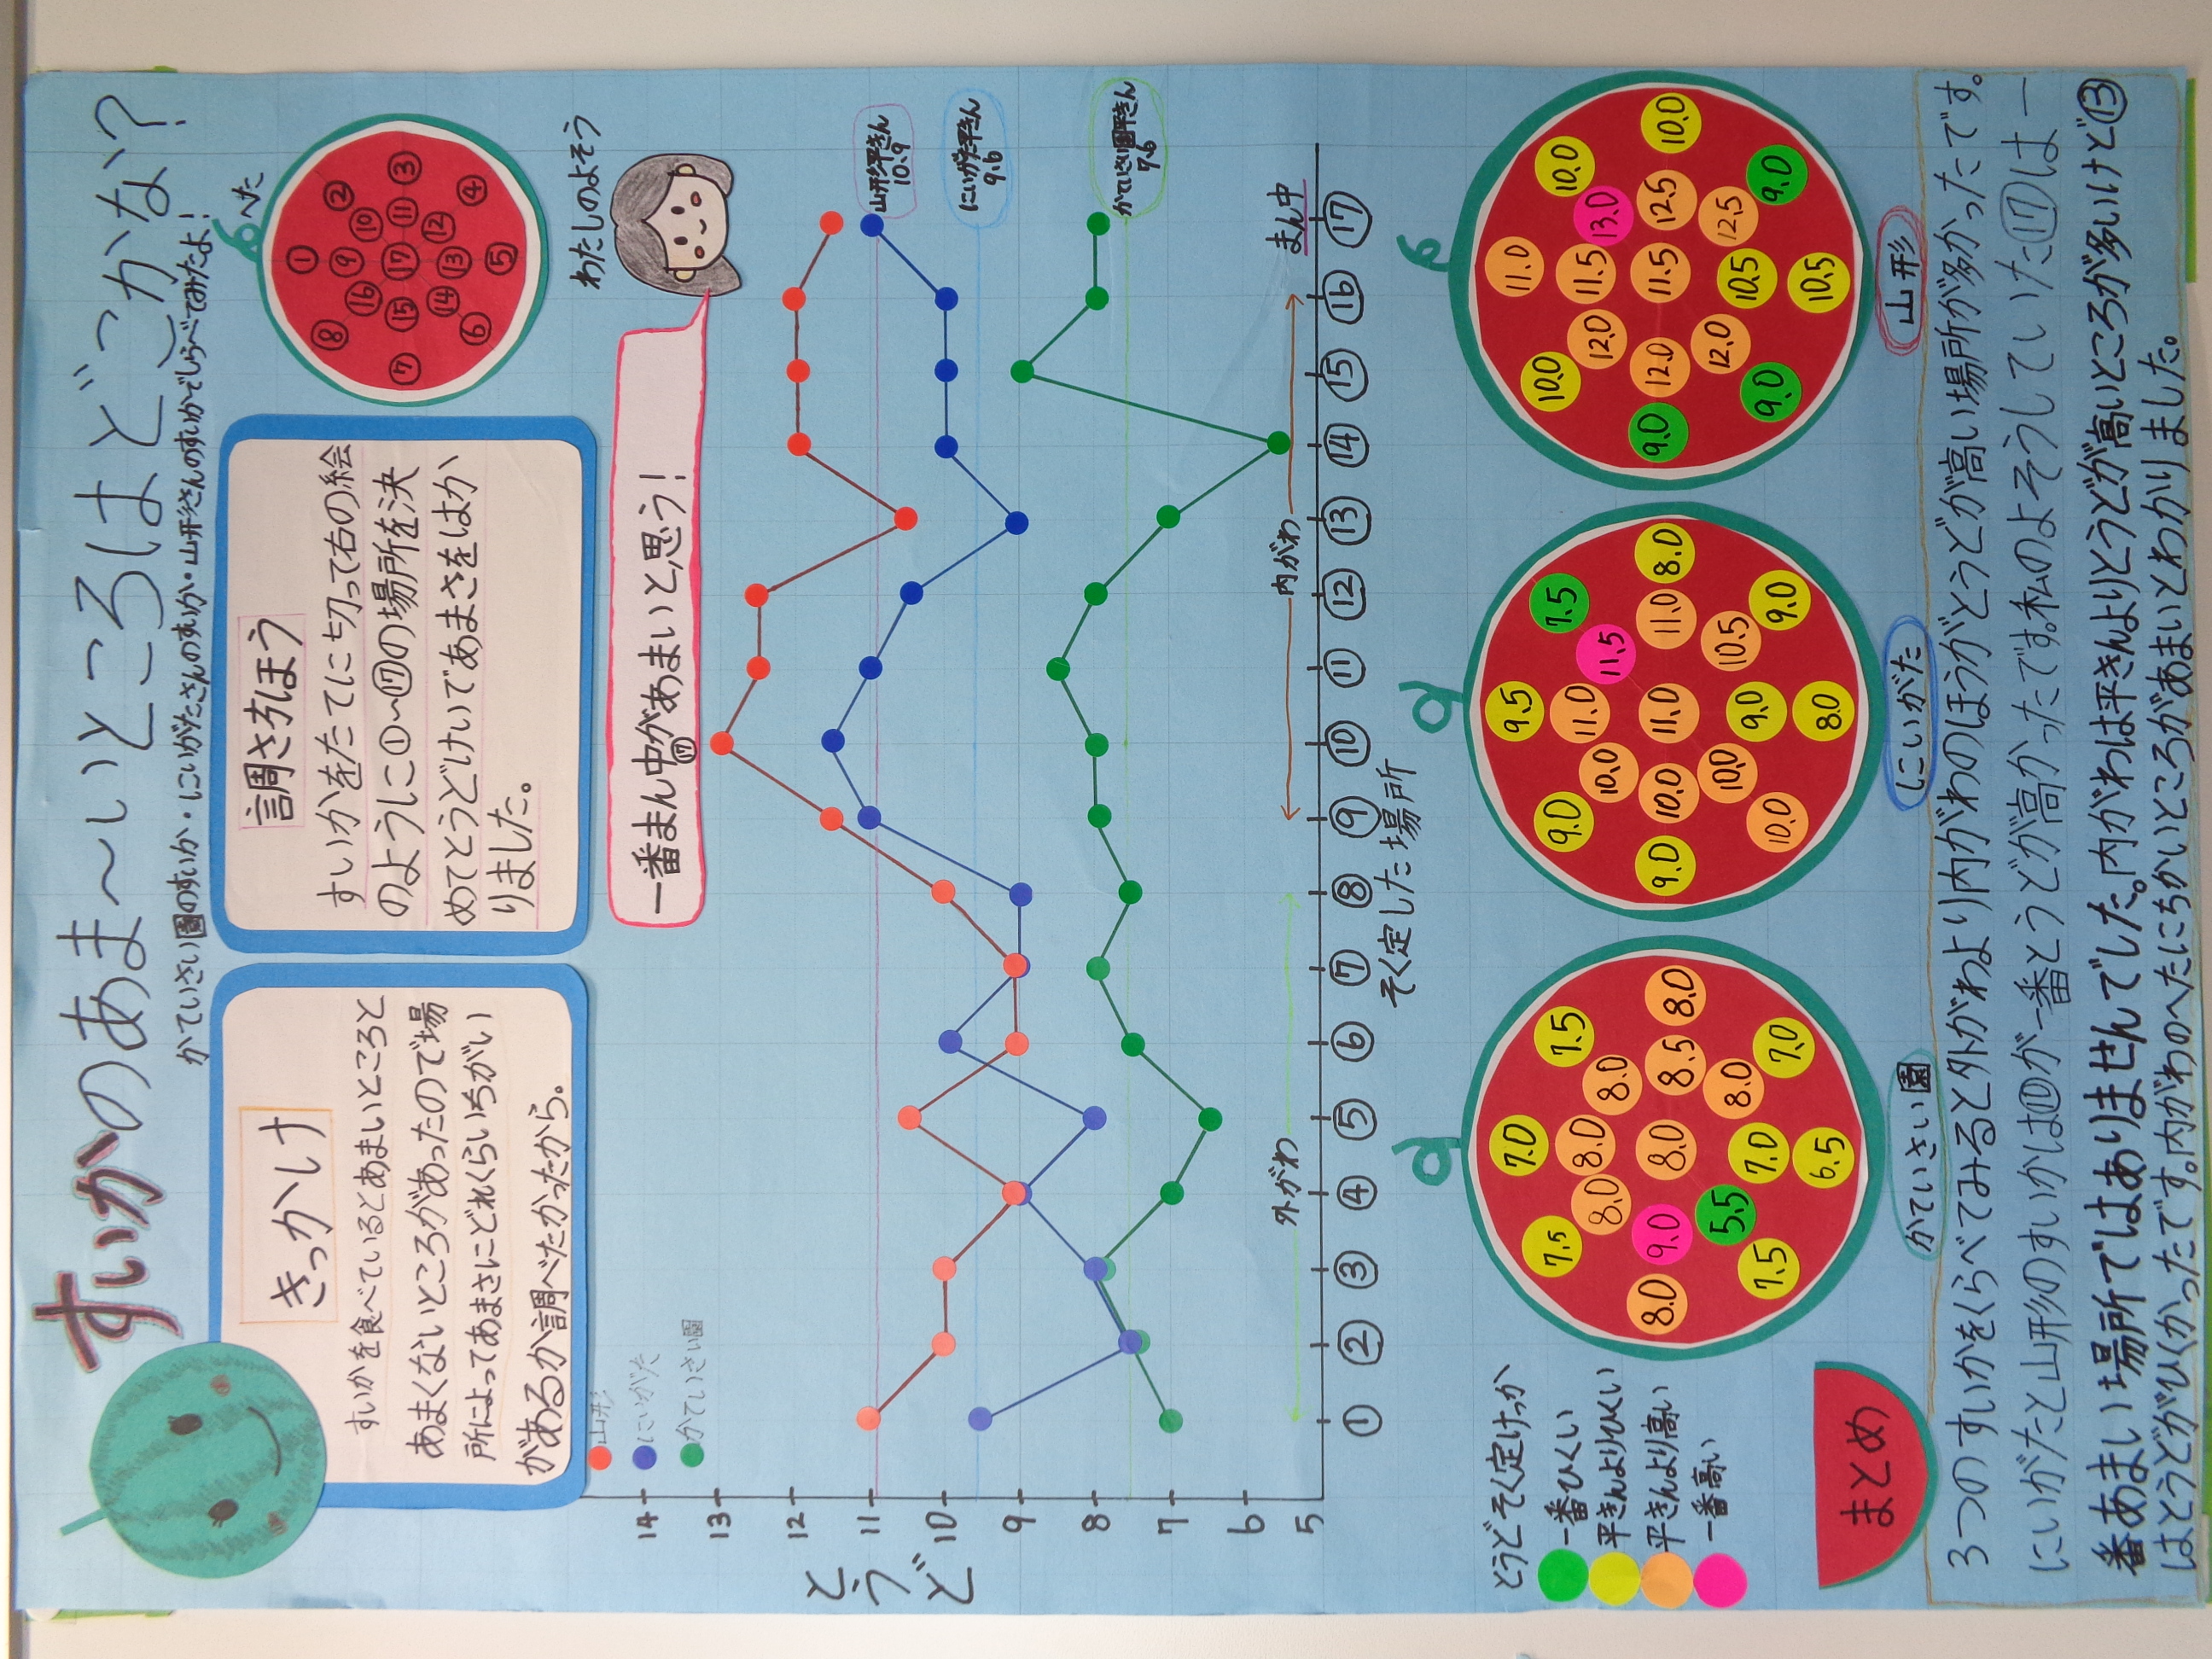 すいかのあま〜いところはどこかな?
かていさい園のすいか・にいがたさんのすいか・山形さんのすいかでしらべてみたよ!
きっかけ
すいかを食べているとあまいところと
あまくないところがあったので場
所によってあまさにどれくらいちがい
があるか調べたかったから。
調さほうほう
すいかをたてに切って右の絵
のように①〜⑰の場所を決
めてとうどけいであまさをはか
りました。
へた
① ② ③ ④ ⑤ ⑥ ⑦ ⑧ ⑨ ⑩ ⑪ ⑫ ⑬ ⑭ ⑮ ⑯ ⑰
わたしのよそう
一番まん中があまいと思う!
⑰
山形
にいがた
かていさい園
とうど
14
13
12
11
10
9
8
7
6
5
山形平きん
10.9
にいがた平きん
9.6
かていさい園平きん
7.6
外がわ
内がわ
まん中
① ② ③ ④ ⑤ ⑥ ⑦ ⑧ ⑨ ⑩ ⑪ ⑫ ⑬ ⑭ ⑮ ⑯ ⑰
そく定した場所
とうどそく定けっか
一番ひくい
平きんよりひくい
平きんより高い
一番高い
7.0
7.5 7.5
8.0 8.0
8.0
8.0 9.0 8.0 8.5 8.0
5.5 8.0
7.0
7.5 7.0
6.5
かていさい園
9.5
9.0 7.5
11.0
10.0 11.5
9.0 10.0 11.0 11.0 8.0
10.0 10.5
9.0
10.0 9.0
8.0
にいがた
11.0
10.0 10.0
11.5
12.0 13.0
9.0 12.0 11.5 12.5 10.0
12.0 12.5
10.5
9.0 9.0
10.5
山形
まとめ
3つのすいかをくらべてみると外がわより内がわのほうがとうどが高い場所が多かったです。
にいがたと山形のすいかは⑩が一番とうどが高かったです。私のよそうしていた⑰は一
番あまい場所ではありませんでした。内がわは平きんよりとうどが高いところが多いけど⑬
はとうどがひくかったです。内がわのへたにちかいところがあまいとわかりました。